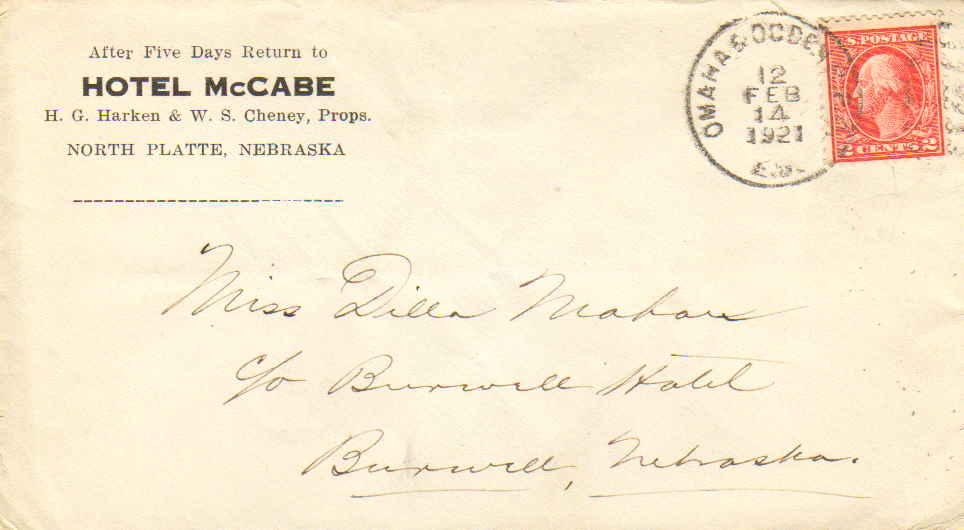 After Five Days Return to
HOTEL McCABE
H. G. Harken & W. S. Cheney, Props.
NORTH PLATTE, NEBRASKA
OMAHA & OGDEN
12
FEB
14
1921
U.S. POSTAGE
2 CENTS 2
Miss Dilla Mahan
c/o Burwell Hotel
Burwell, Nebraska.